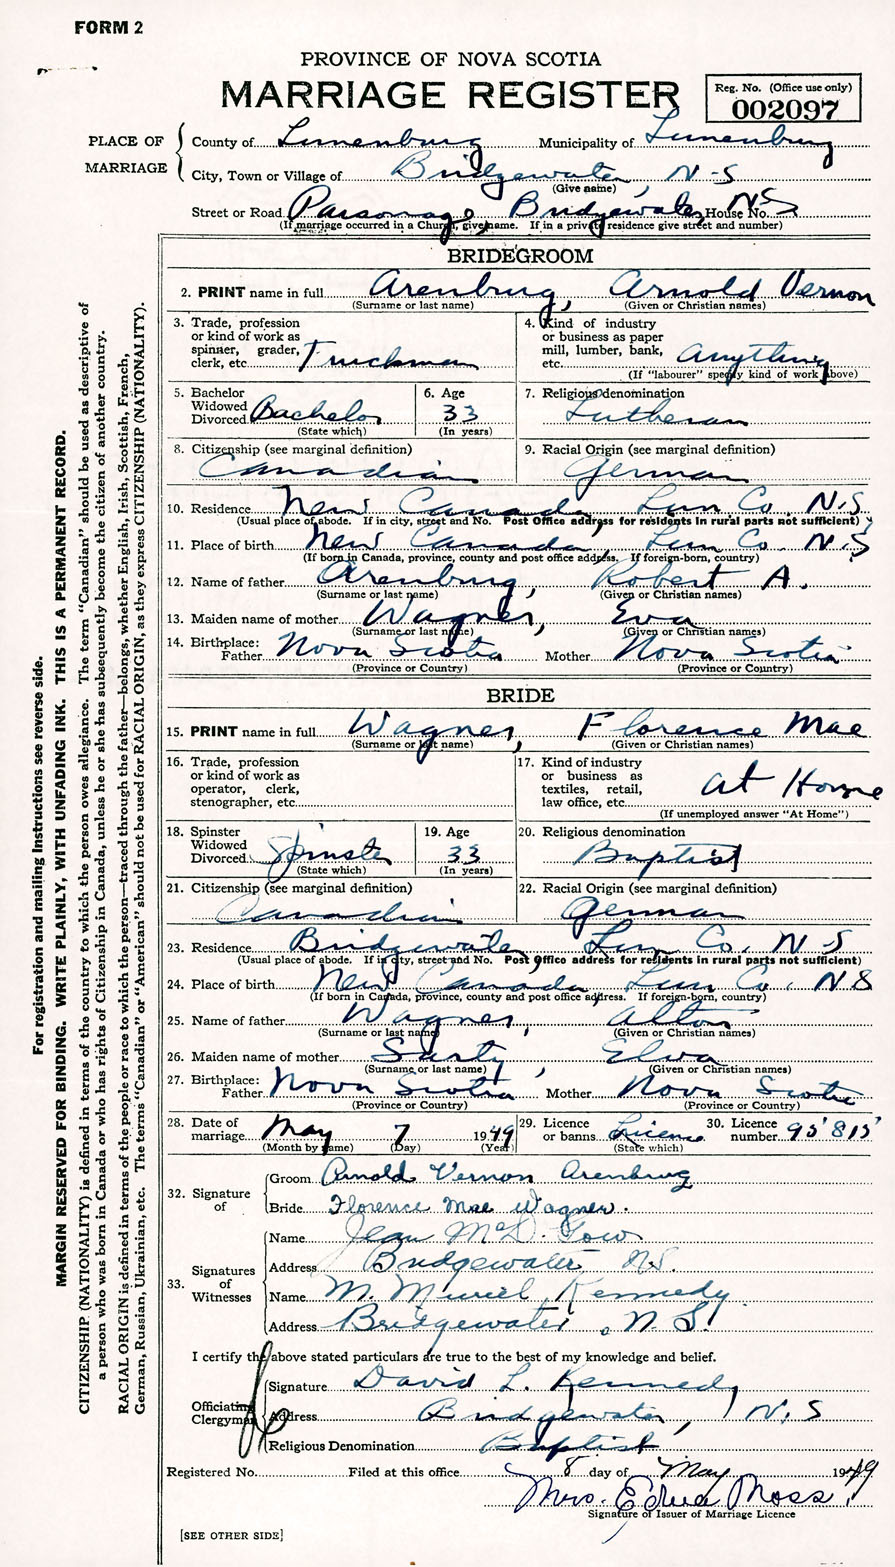 FORM 2
PROVINCE OF NOVA SCOTIA
MARRIAGE REGISTER
Reg. No. (Office use only)
002097
PLACE OF MARRIAGE
County of Lunenburg Municipality of Lunenburg
City, Town or Village of Bridgewater, N-S
(Give name)
Street or Road Parsonage, Bridgewater, House No. NS
(If marriage occurred in a Church, give name. If in a private residence give street and number)
BRIDEGROOM
2. PRINT name in full Arenburg, Arnold Vernon
(Surname or last name) (Given or Christian names)
3. Trade, profession or kind of work as spinner, grader, clerk, etc. Truckman
4. Kind of industry or business as paper mill, lumber, bank, etc. Anything
(If "labourer" specify kind of work above)
5. Bachelor Widowed Divorced Bachelor
(State which)
6. Age 33
(In years)
7. Religious denomination Lutheran
8. Citizenship (see marginal definition) Canadian
9. Racial Origin (see marginal definition) German
10. Residence New Canada, Lun Co. N.S
(Usual place of abode. If in city, street and No. Post Office address for residents in rural parts not sufficient)
11. Place of birth New Canada, Lun Co. N.S
(If born in Canada, province, county and post office address. If foreign-born, country)
12. Name of father Arenburg, Robert A.
(Surname or last name) (Given or Christian names)
13. Maiden name of mother Wagner, Eva
(Surname or last name) (Given or Christian names)
14. Birthplace: Father Nova Scotia Mother Nova Scotia
(Province or Country) (Province or Country)
BRIDE
15. PRINT name in full Wagner, Florence Mae
(Surname or last name) (Given or Christian names)
16. Trade, profession or kind of work as operator, clerk, stenographer, etc.
17. Kind of industry or business as textiles, retail, law office, etc. At Home
(If unemployed answer "At Home")
18. Spinster Widowed Divorced Spinster
(State which)
19. Age 33
(In years)
20. Religious denomination Baptist
21. Citizenship (see marginal definition) Canadian
22. Racial Origin (see marginal definition) German
23. Residence Bridgewater, Lun Co. N-S
(Usual place of abode. If in city, street and No. Post Office address for residents in rural parts not sufficient)
24. Place of birth New Canada Lun Co. NS
(If born in Canada, province, county and post office address. If foreign-born, country)
25. Name of father Wagner, Alton
(Surname or last name) (Given or Christian names)
26. Maiden name of mother Sarty, Elva
(Surname or last name) (Given or Christian names)
27. Birthplace: Father Nova Scotia Mother Nova Scotia
(Province or Country) (Province or Country)
28. Date of marriage May 7 1949
(Month by name) (Day) (Year)
29. Licence or banns License
(State which)
30. Licence number 95815
32. Signature of
Groom Arnold Vernon Arenburg
Bride Florence Mae Wagner.
33. Signatures of Witnesses
Name Jean McD. Gow
Address Bridgewater NS.
Name M. Muriel Kennedy
Address Bridgewater, N.S.
I certify the above stated particulars are true to the best of my knowledge and belief.
Officiating Clergyman
Signature David L. Kennedy
Address Bridgewater, N.S
Religious Denomination Baptist
Registered No. Filed at this office 8 day of May 1949
Mrs. Edna Moss.
Signature of Issuer of Marriage Licence
[SEE OTHER SIDE]
For registration and mailing instructions see reverse side.
MARGIN RESERVED FOR BINDING. WRITE PLAINLY, WITH UNFADING INK. THIS IS A PERMANENT RECORD.
CITIZENSHIP (NATIONALITY) is defined in terms of the country to which the person owes allegiance. The term "Canadian" should be used as descriptive of
a person who was born in Canada or who has rights of Citizenship in Canada, unless he or she has subsequently become the citizen of another country.
RACIAL ORIGIN is defined in terms of the people or race to which the person—traced through the father—belongs, whether English, Irish, Scottish, French,
German, Russian, Ukrainian, etc. The terms "Canadian" or "American" should not be used for RACIAL ORIGIN, as they express CITIZENSHIP (NATIONALITY).